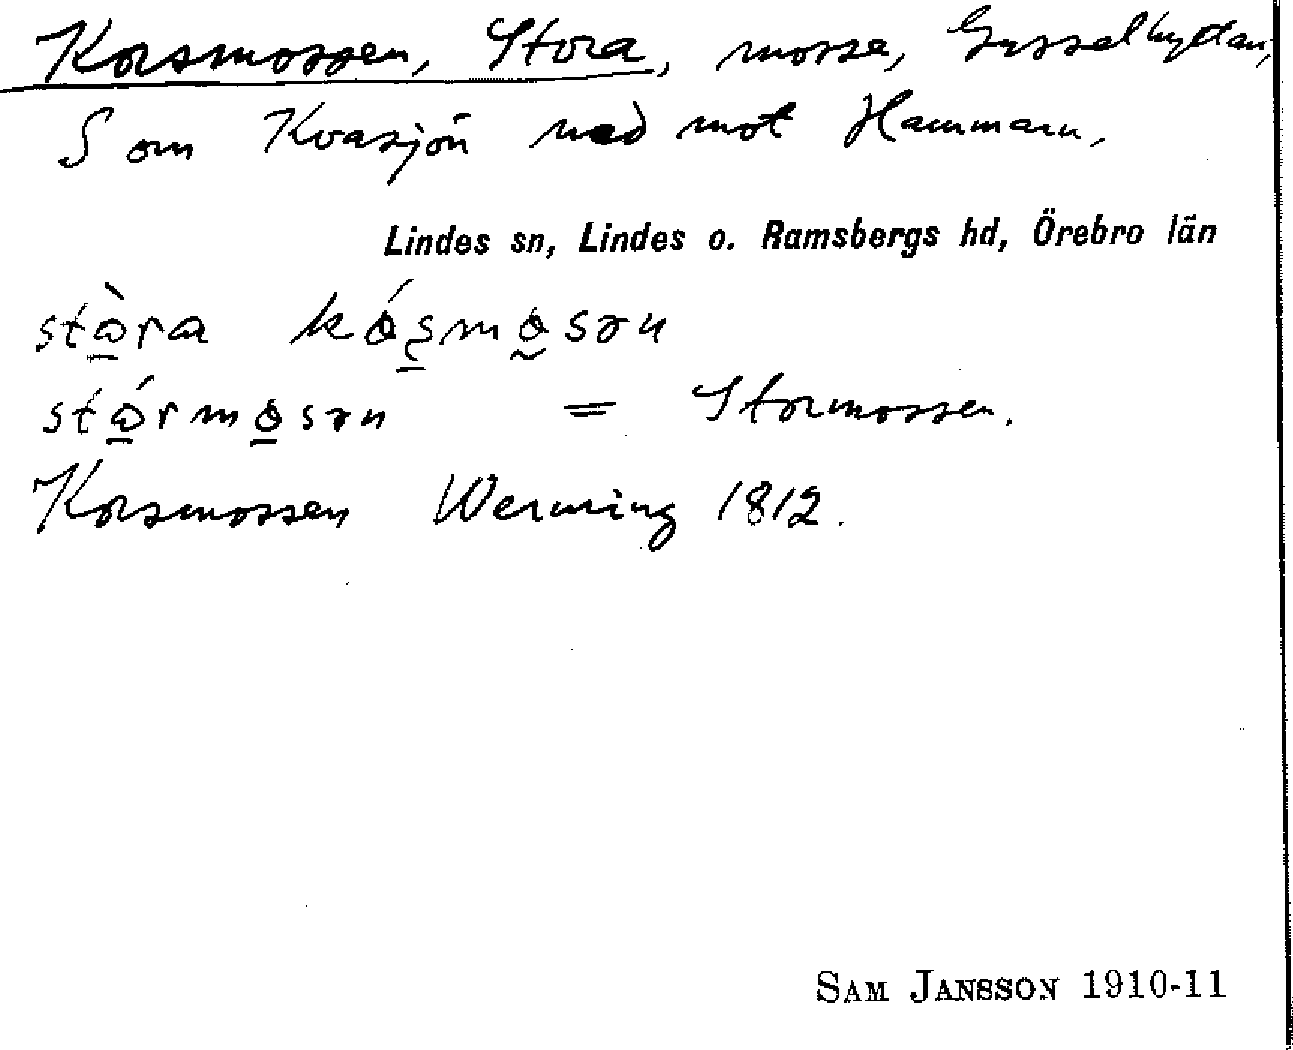 Korsmossen, Stora, mosse, Gusselhyttan,
S om Kvasjön ned mot Hammarn.
Lindes sn, Lindes o. Ramsbergs hd, Örebro län
= Stormossen.
Korsmossen Werming 1812.
SAM JANSSON 1910-11